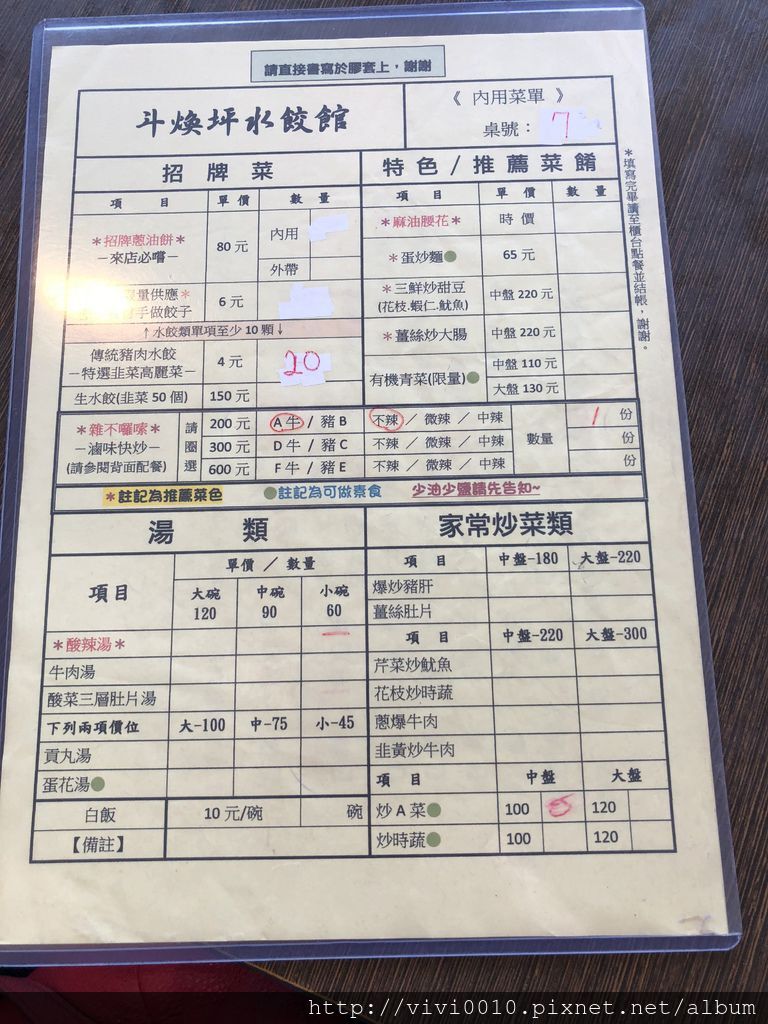 請直接書寫於膠套上，謝謝
斗煥坪水餃館
《 內用菜單 》
桌號： 7
＊填寫完畢請至櫃台點餐並結帳，謝謝。
招 牌 菜
項 目 單 價 數 量
＊招牌蔥油餅＊
－來店必嚐－
80 元
內用
外帶
量供應＊
手做餃子
6 元
↑水餃類單項至少 10 顆↓
傳統豬肉水餃
－特選韭菜高麗菜－
4 元
20
生水餃(韭菜 50 個) 150 元
特 色 / 推 薦 菜 餚
項 目 單 價 數 量
＊麻油腰花＊ 時 價
＊蛋炒麵● 65 元
＊三鮮炒甜豆
(花枝.蝦仁.魷魚)
中盤 220 元
＊薑絲炒大腸 中盤 220 元
有機青菜(限量)●
中盤 110 元
大盤 130 元
＊雜不囉嗦＊
－滷味快炒－
(請參閱背面配餐)
請圈選
200 元 A 牛 / 豬 B 不辣 ／ 微辣 ／ 中辣
300 元 D 牛 / 豬 C 不辣 ／ 微辣 ／ 中辣
600 元 F 牛 / 豬 E 不辣 ／ 微辣 ／ 中辣
數量
1 份
份
份
＊註記為推薦菜色 ●註記為可做素食 少油少鹽請先告知~
湯 類
項目
單價 ／ 數量
大碗 中碗 小碗
120 90 60
＊酸辣湯＊ 一
牛肉湯
酸菜三層肚片湯
下列兩項價位 大-100 中-75 小-45
貢丸湯
蛋花湯●
白飯 10 元/碗 碗
【備註】
家常炒菜類
項 目 中盤-180 大盤-220
爆炒豬肝
薑絲肚片
項 目 中盤-220 大盤-300
芹菜炒魷魚
花枝炒時蔬
蔥爆牛肉
韭黃炒牛肉
項 目 中盤 大盤
炒 A 菜● 100 120
炒時蔬● 100 120
http://vivi0010.pixnet.net/album